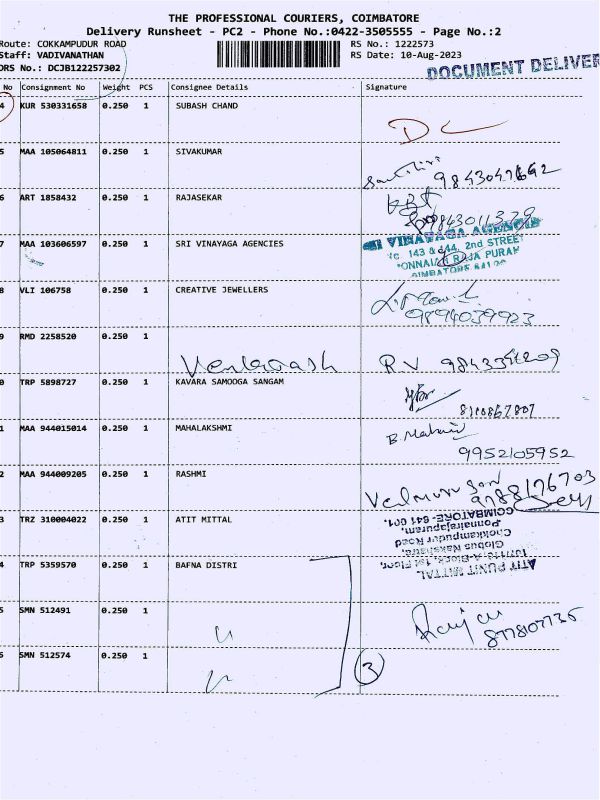 THE PROFESSIONAL COURIERS, COIMBATORE
Delivery Runsheet - PC2 - Phone No.:0422-3505555 - Page No.:2
Route: COKKAMPUDUR ROAD RS No.: 1222573
Staff: VADIVANATHAN RS Date: 10-Aug-2023
DRS No.: DCJB122257302
DOCUMENT DELIVER
No Consignment No Weight PCS Consignee Details Signature
4 KUR 530331658 0.250 1 SUBASH CHAND
DC
5 MAA 105064811 0.250 1 SIVAKUMAR
6 ART 1858432 0.250 1 RAJASEKAR
9843011379
7 MAA 103606597 0.250 1 SRI VINAYAGA AGENCIES
SRI VINAYAGA AGENCIES
143 & 144, 2nd STREET
PONNAIAH RAJA PURAM
COIMBATORE
8 VLI 106758 0.250 1 CREATIVE JEWELLERS
9894039923
9 RMD 2258520 0.250 1
Venkatash R V
0 TRP 5898727 0.250 1 KAVARA SAMOOGA SANGAM
8100867807
1 MAA 944015014 0.250 1 MAHALAKSHMI
9952105952
2 MAA 944009205 0.250 1 RASHMI
9788176703
3 TRZ 310004022 0.250 1 ATIT MITTAL
ATIT PUNIT MITTAL
A-Block, 1st Floor,
Globus Nakshatra,
Chokkampudur Road
Ponnairajapuram,
COIMBATORE- 641 001.
4 TRP 5359570 0.250 1 BAFNA DISTRI
5 SMN 512491 0.250 1
6 SMN 512574 0.250 1
3